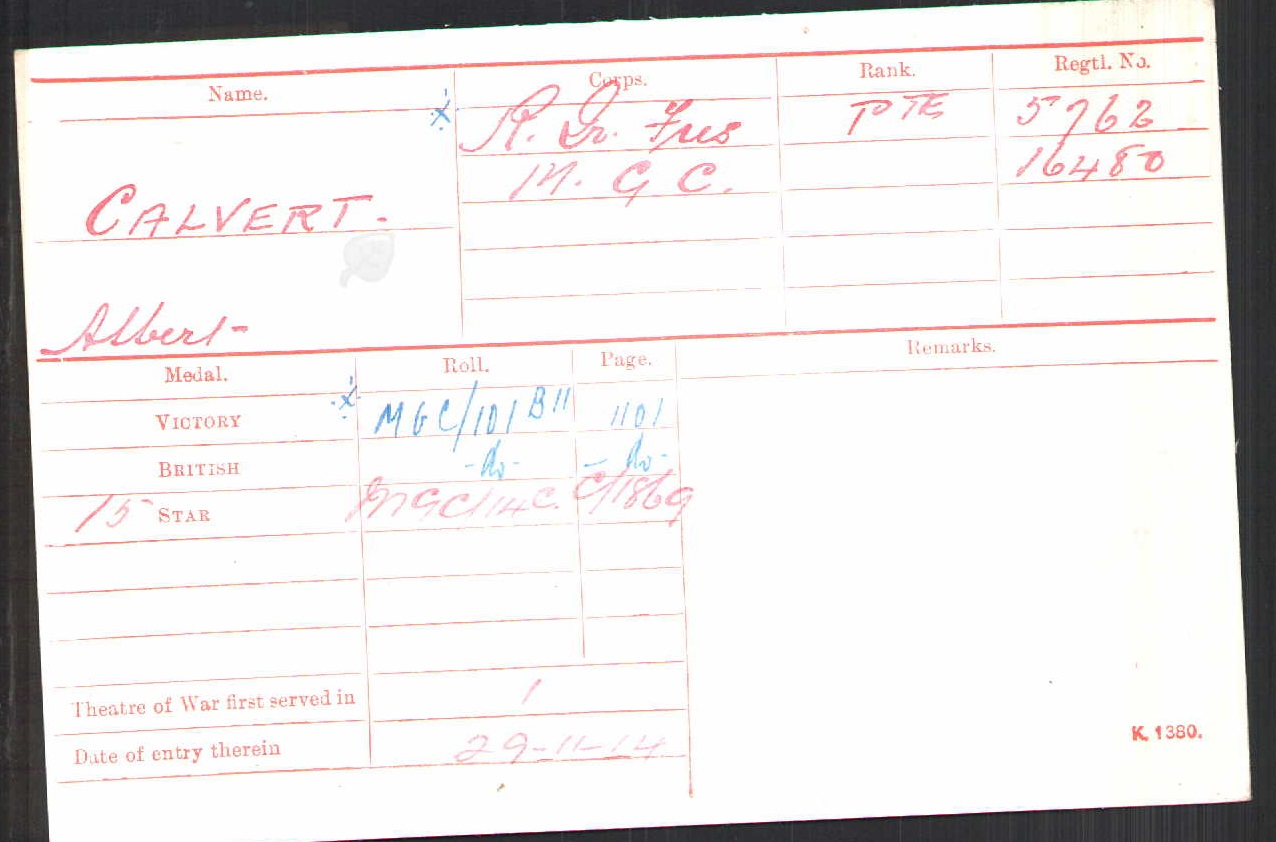 Name. Corps. Rank. Regtl. No.
x R. Ir. Fus PTE 5762
M. G C. 16480
CALVERT.
Albert
Medal. Roll. Page. Remarks.
VICTORY x MGC/101 B11 1101
BRITISH -do- -do-
15 STAR MGC/14C. C/1869
Theatre of War first served in 1
Date of entry therein 29-11-14
K. 1380.